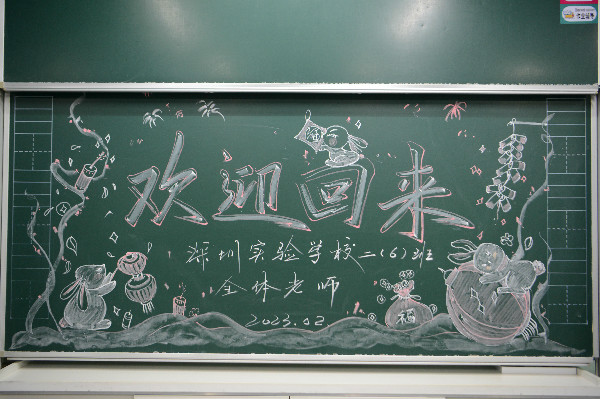 欢迎回来
深圳实验学校二(6)班
全体老师
2023.02
福